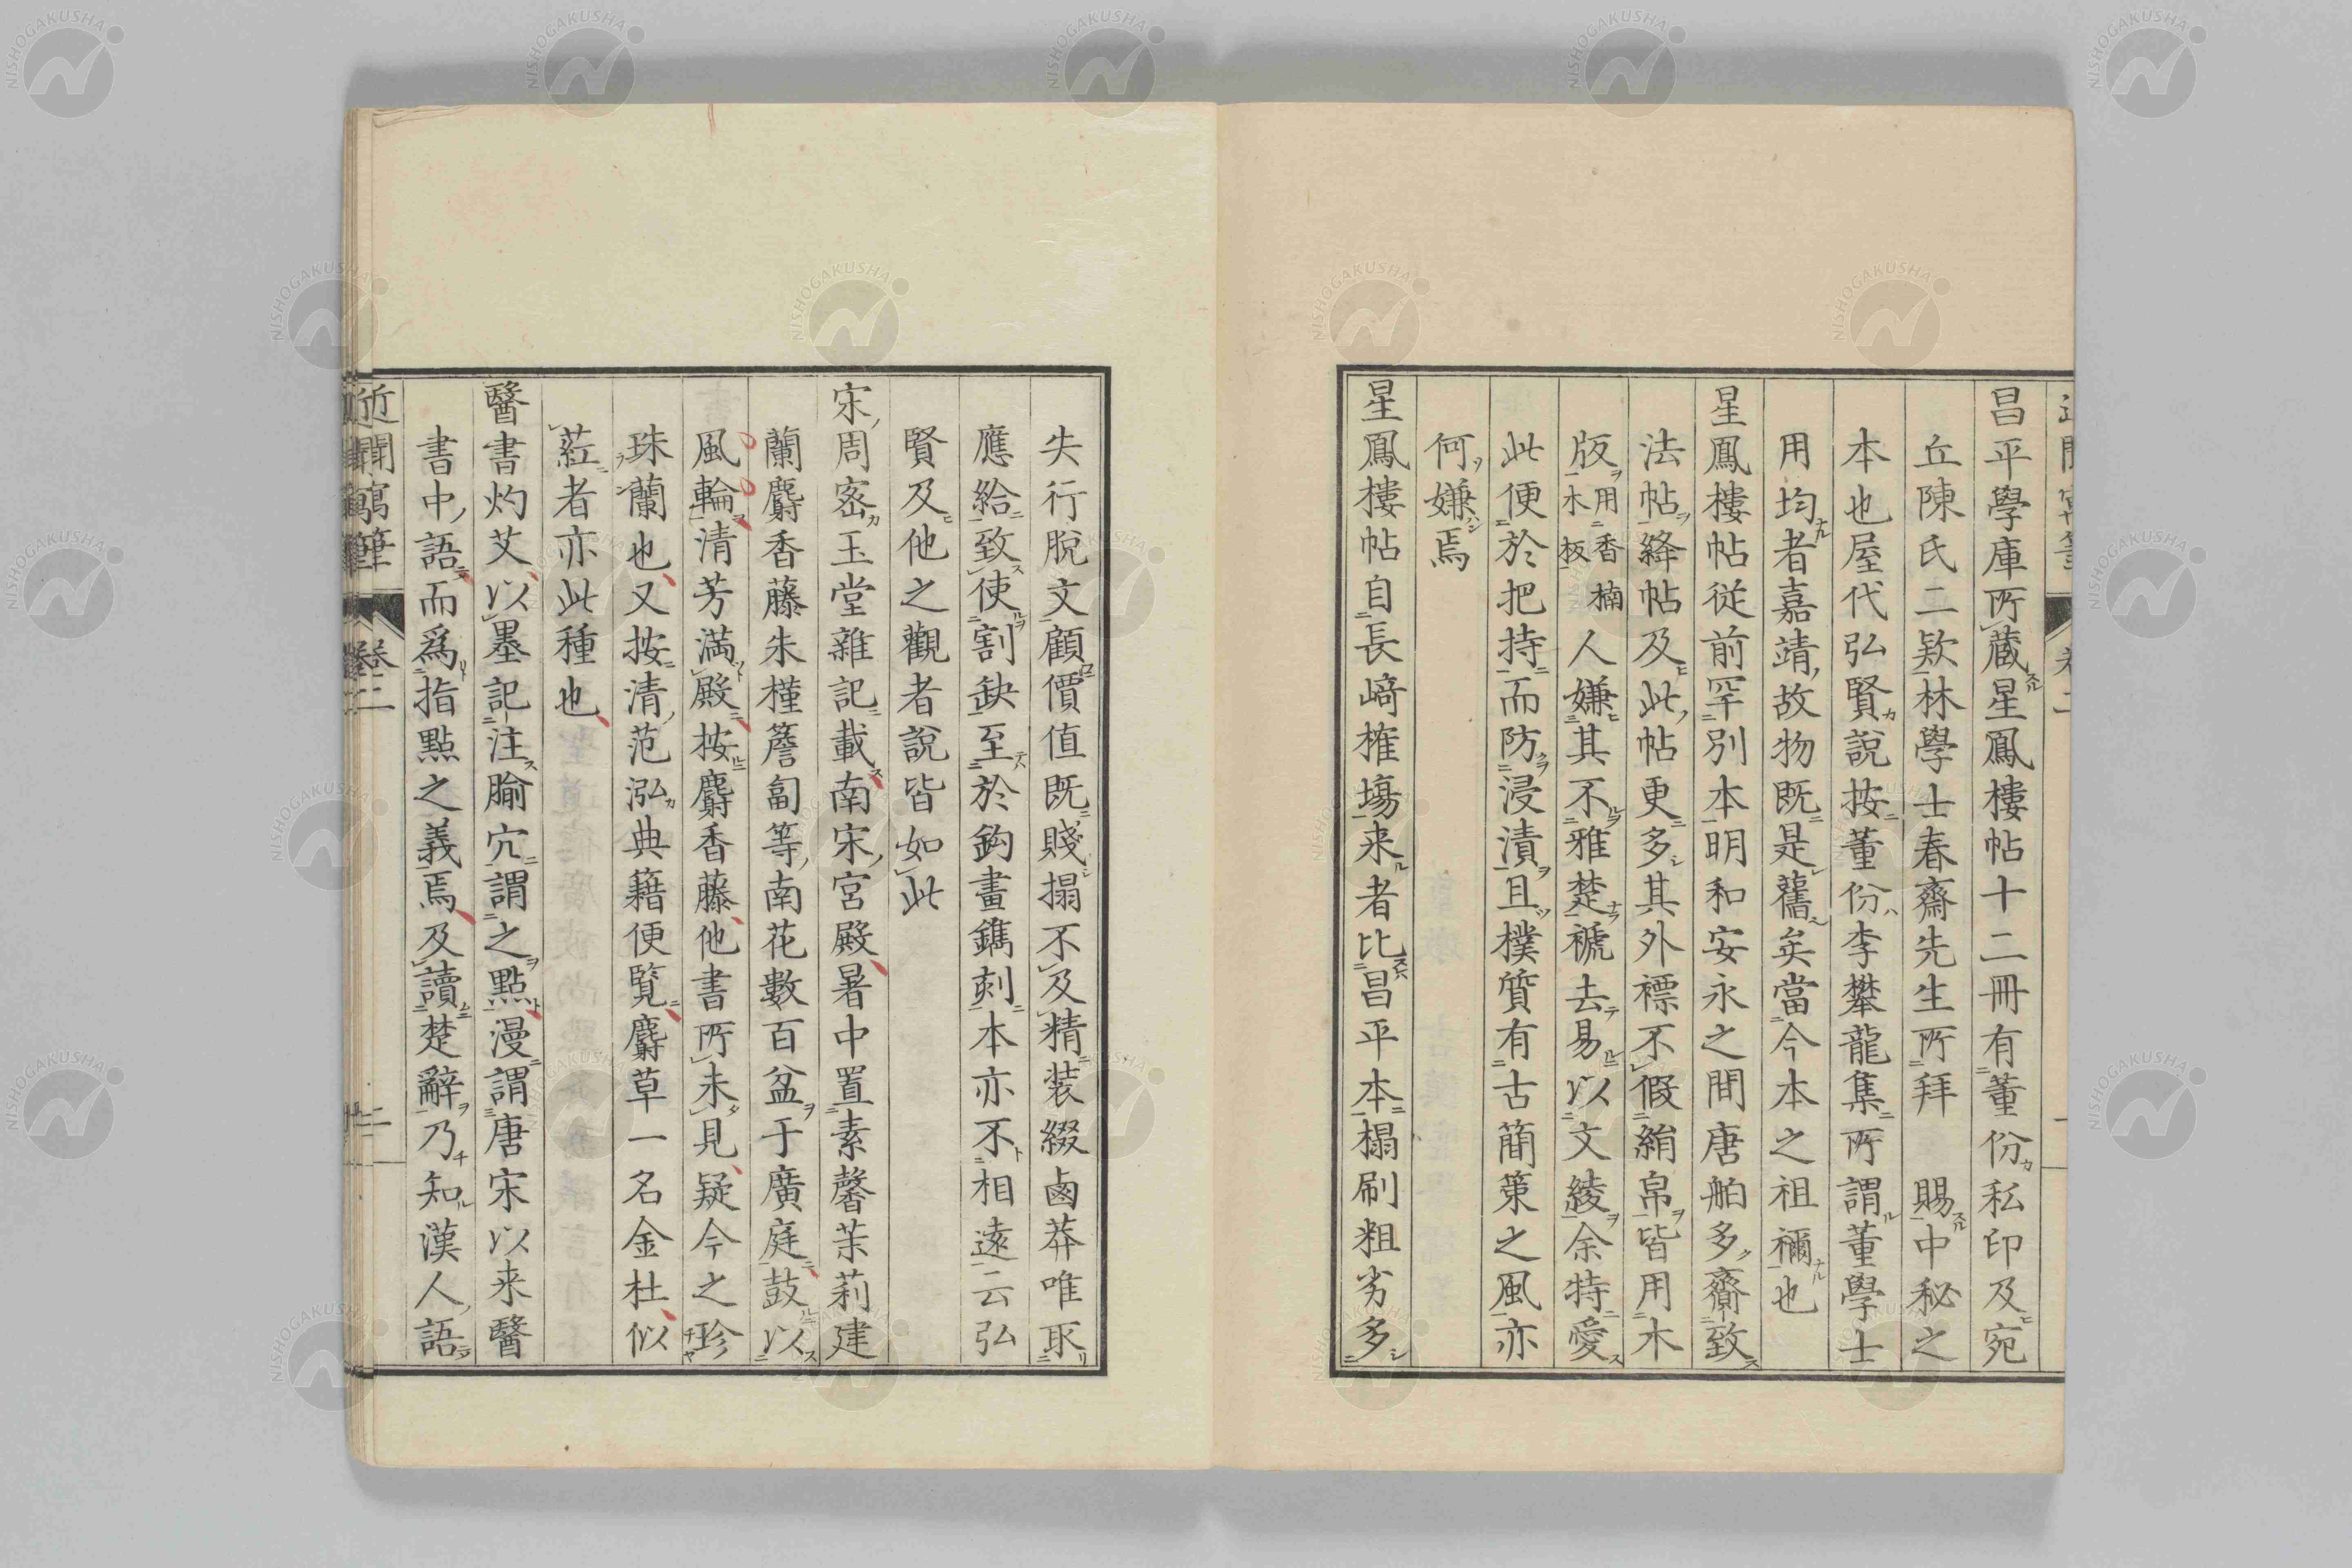 昌平學庫所藏星鳳樓帖十二冊有董份私印及宛
丘陳氏二欵林學士春齋先生所拜　賜中秘之
本也屋代弘賢說按董份李攀龍集所謂董學士
用均者嘉靖故物既是舊矣當今本之祖禰也
星鳳樓帖從前罕別本明和安永之間唐舶多齎致
法帖絳帖及此帖更多其外標不假絹帛皆用木
版用香楠木板人嫌其不雅楚褫去易以文綾余特愛
此便於把持而防浸漬且樸質有古簡策之風亦
何嫌焉
星鳳樓帖自長崎榷場来者比昌平本榻刷粗劣多
失行脫文顧價值既賤搨不及精装綴鹵莽唯取
應給致使割缺至於鈎畫鐫刻本亦不相遠云弘
賢及他之觀者說皆如此
宋周密玉堂雜記載南宋宮殿暑中置素馨茉莉建
蘭麝香藤朱槿簷匐等南花數百盆于廣庭鼓以
風輪清芳満殿按麝香藤他書所未見疑今之珍
珠蘭也又按清范泓典籍便覧麝草一名金杜似
葒者亦此種也
醫書灼艾以墨記注腧穴謂之點漫謂唐宋以来醫
書中語而爲指點之義焉及讀楚辭乃知漢人語
近聞寓筆
卷二
二
NISHOGAKUSHA